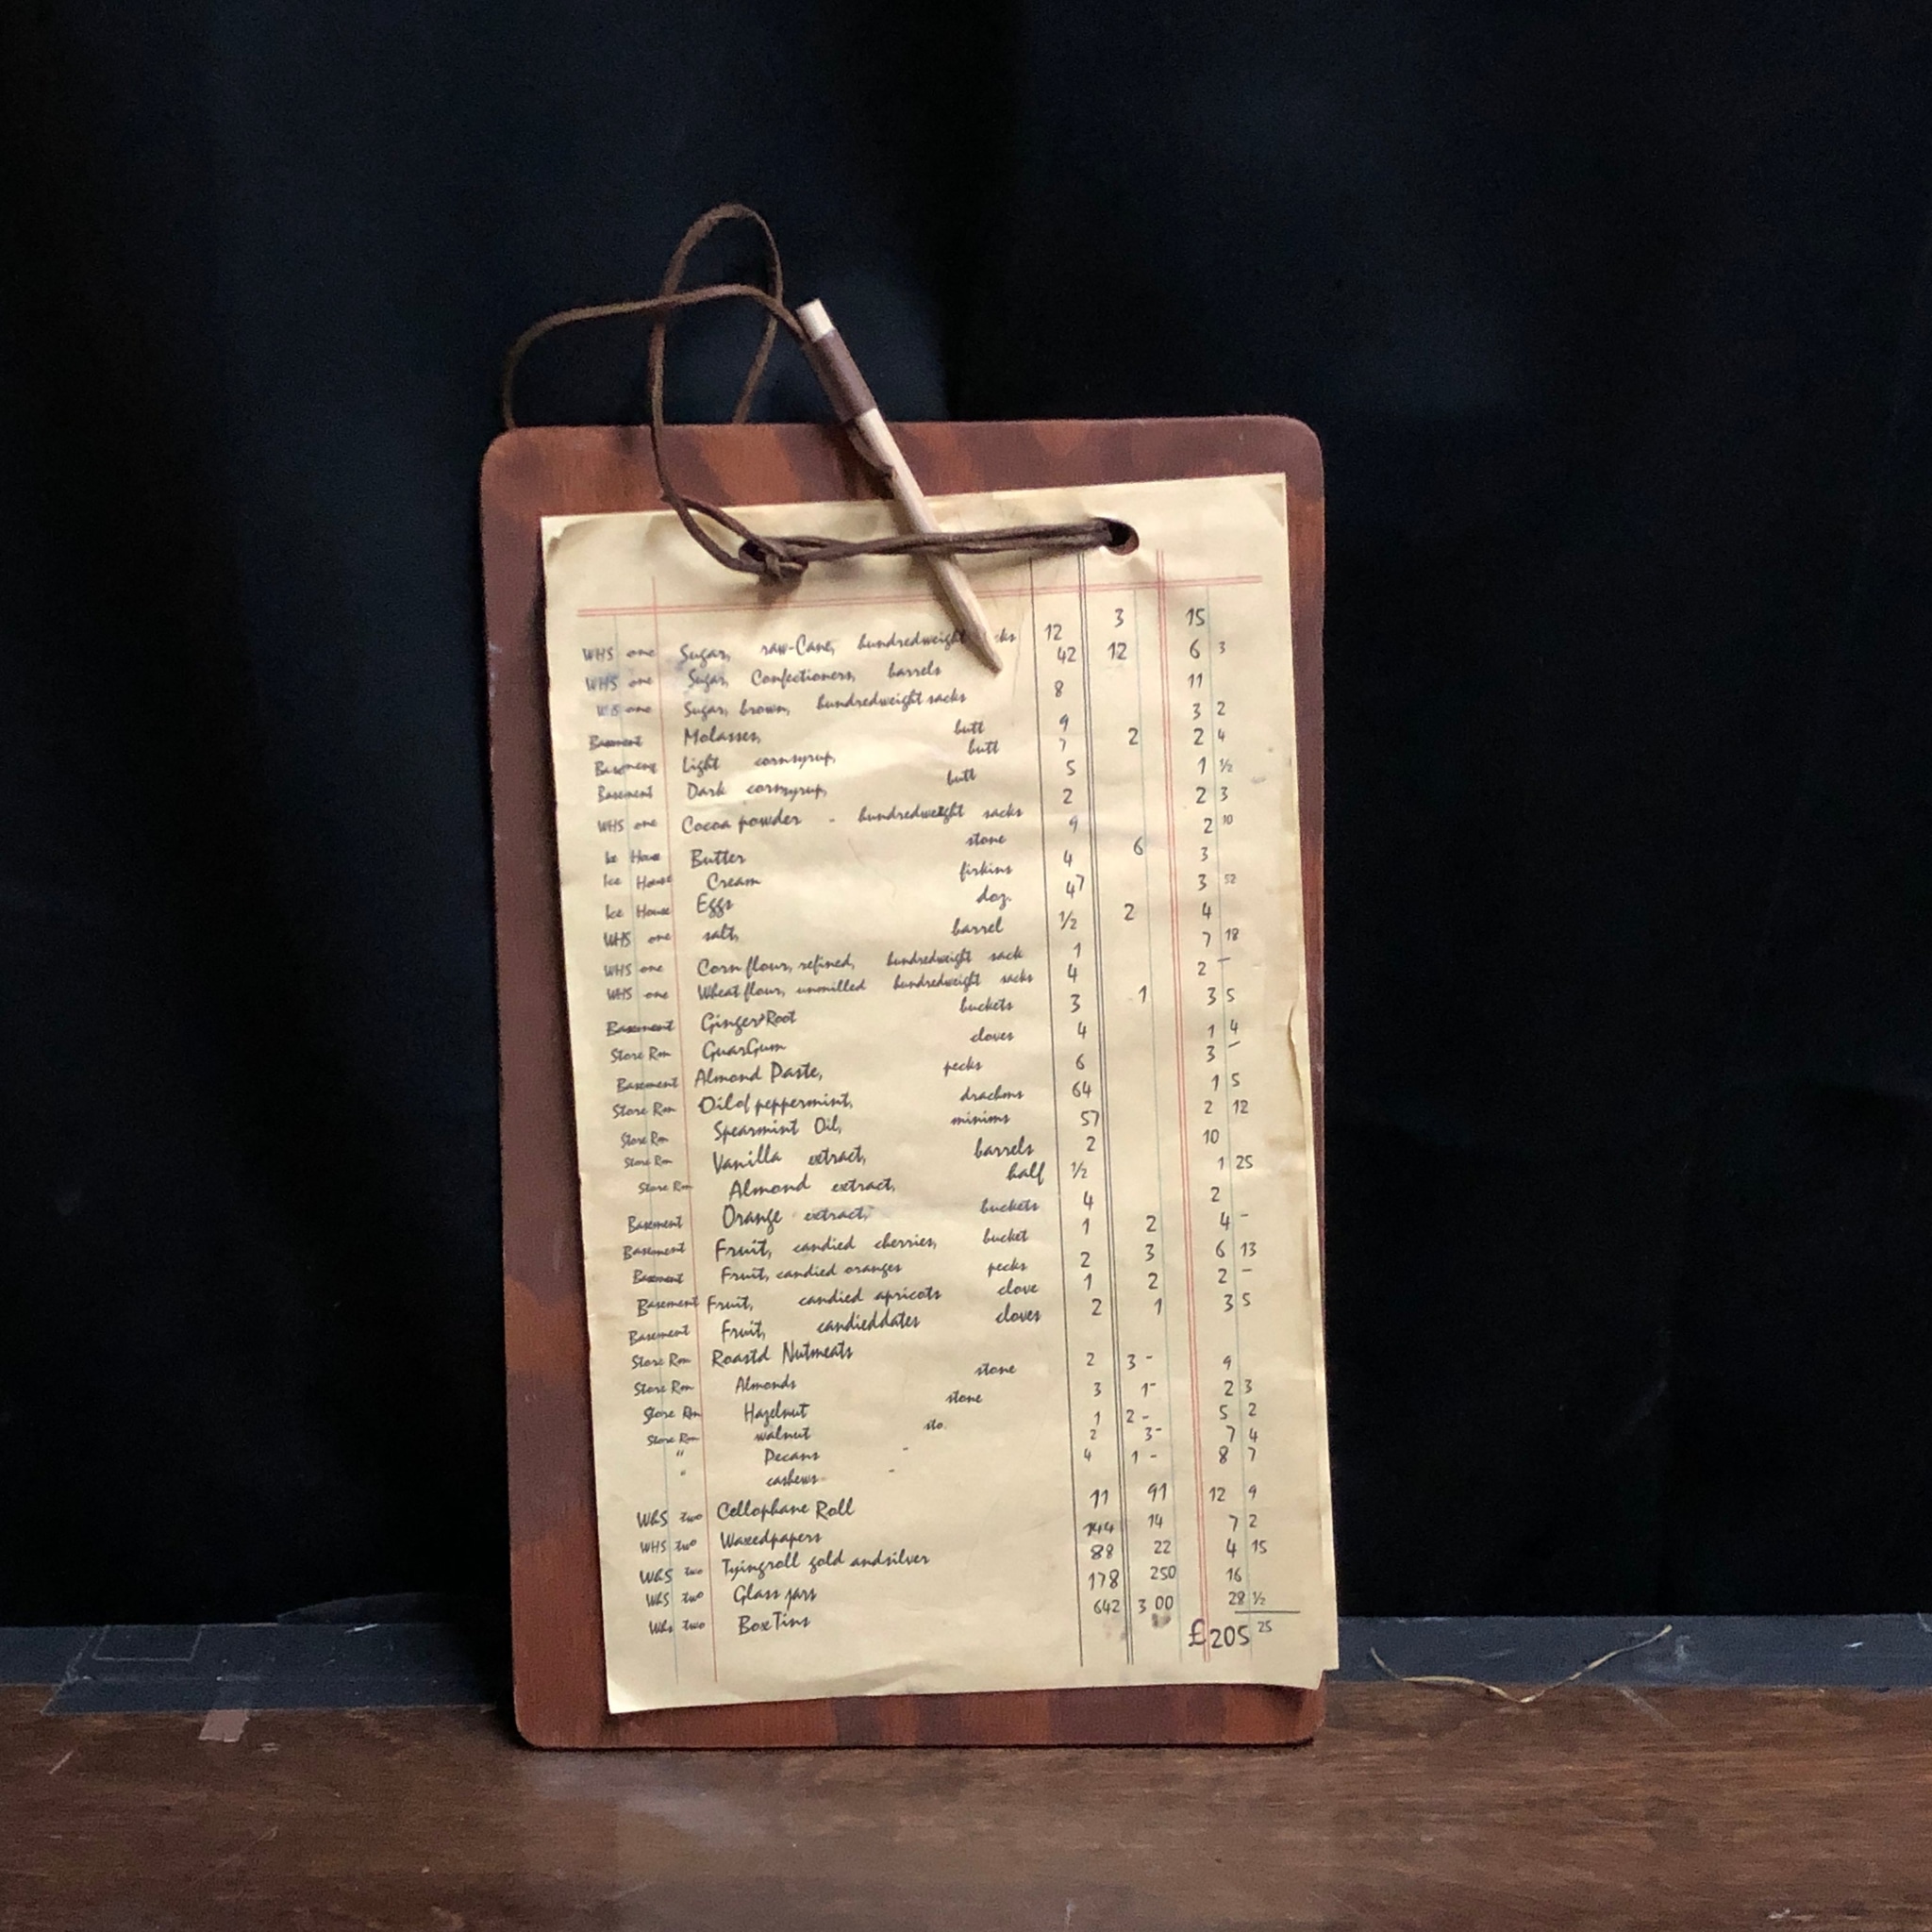 WHS one Sugar, raw-Cane, hundredweight cks 12 3 15
WHS one Sugar, Confectioners, barrels 42 12 6 3
one Sugar, brown, hundredweight sacks 8 11
Basement Molasses, butt 9 3 2
Basement Light cornsyrup, butt 7 2 2 4
Basement Dark cornsyrup, butt 5 1 ½
WHS one Cocoa powder - hundredweight sacks 2 2 3
Ice House Butter stone 9 2 10
Ice House Cream firkins 4 6 3
Ice House Eggs doz. 47 3 52
WHS one salt, barrel ½ 2 4
WHS one Corn flour, refined, hundredweight sack 1 7 18
WHS one Wheat flour, unmilled hundredweight sacks 4 2 -
Basement Ginger Root buckets 3 1 3 5
Store Rm GuarGum cloves 4 1 4
Basement Almond Paste, pecks 6 3 -
Store Rm Oil of peppermint, drachms 64 1 5
Store Rm Spearmint Oil, minims 57 2 12
Store Rm Vanilla extract, barrels 2 10
Store Rm Almond extract, half ½ 1 25
Basement Orange extract, buckets 4 2
Basement Fruit, candied cherries, bucket 1 2 4 -
Basement Fruit, candied oranges pecks 2 3 6 13
Basement Fruit, candied apricots clove 1 2 2 -
Basement Fruit, candieddates cloves 2 1 3 5
Store Rm Roastd Nutmeats
Store Rm Almonds stone 2 3 - 9
Store Rm Hazelnut stone 3 1- 2 3
Store Rm walnut sto. 1 2 - 5 2
" Pecans - 2 3- 7 4
" cashews - 4 1 - 8 7
WhS two Cellophane Roll 11 91 12 9
WHS two Waxedpapers 144 14 7 2
WhS two Tyingroll gold andsilver 88 22 4 15
WhS two Glass jars 178 250 16
Whs two BoxTins 642 3 00 28 ½
£205 25